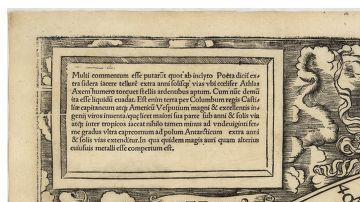 Multi commentum esse putarūt quot ab inclyto Poëta dicit ex
tra sidera iacere tellurē extra anni solisq; vias vbi cœlifer Athlas
Axem humero torquet stellis ardentibus aptum. Cum nūc demū
ita esse liquidū euadat. Est enim terra per Columbum regis Casti=
liæ capitaneum atq; Americū Vesputium magni & excellentis in=
genij viros inuenta, quę licet maiori sua parte sub anni & solis via
atq; inter tropicos iaceat nihilo tamen minus ad vndeuiginti fer=
me gradus vltra capricornum ad polum Antarcticum extra anni
& solis vias extenditur. In qua quidem magis auri quam alterius
cuiusuis metalli esse compertum est.